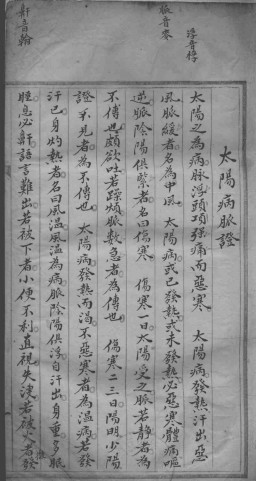 浮音桴
脈音麥
鼾音翰
太陽病脈證
太陽之為病脈浮頭項強痛而惡寒 太陽病發熱汗出惡
風脈緩者名為中風 太陽病或已發熱或未發熱必惡寒體痛嘔
逆脈陰陽俱緊者名曰傷寒 傷寒一日太陽受之脈若靜者為
不傳也頗欲吐若躁煩脈數急者為傳也 傷寒二三日陽明少陽
證不見者為不傳也 太陽病發熱而渴不惡寒者為溫病若發
汗已身灼熱者名曰風溫風溫為病脈陰陽俱浮自汗出身重多眠
睡息必鼾語言難出若被下者小便不利直視失溲若被火者發